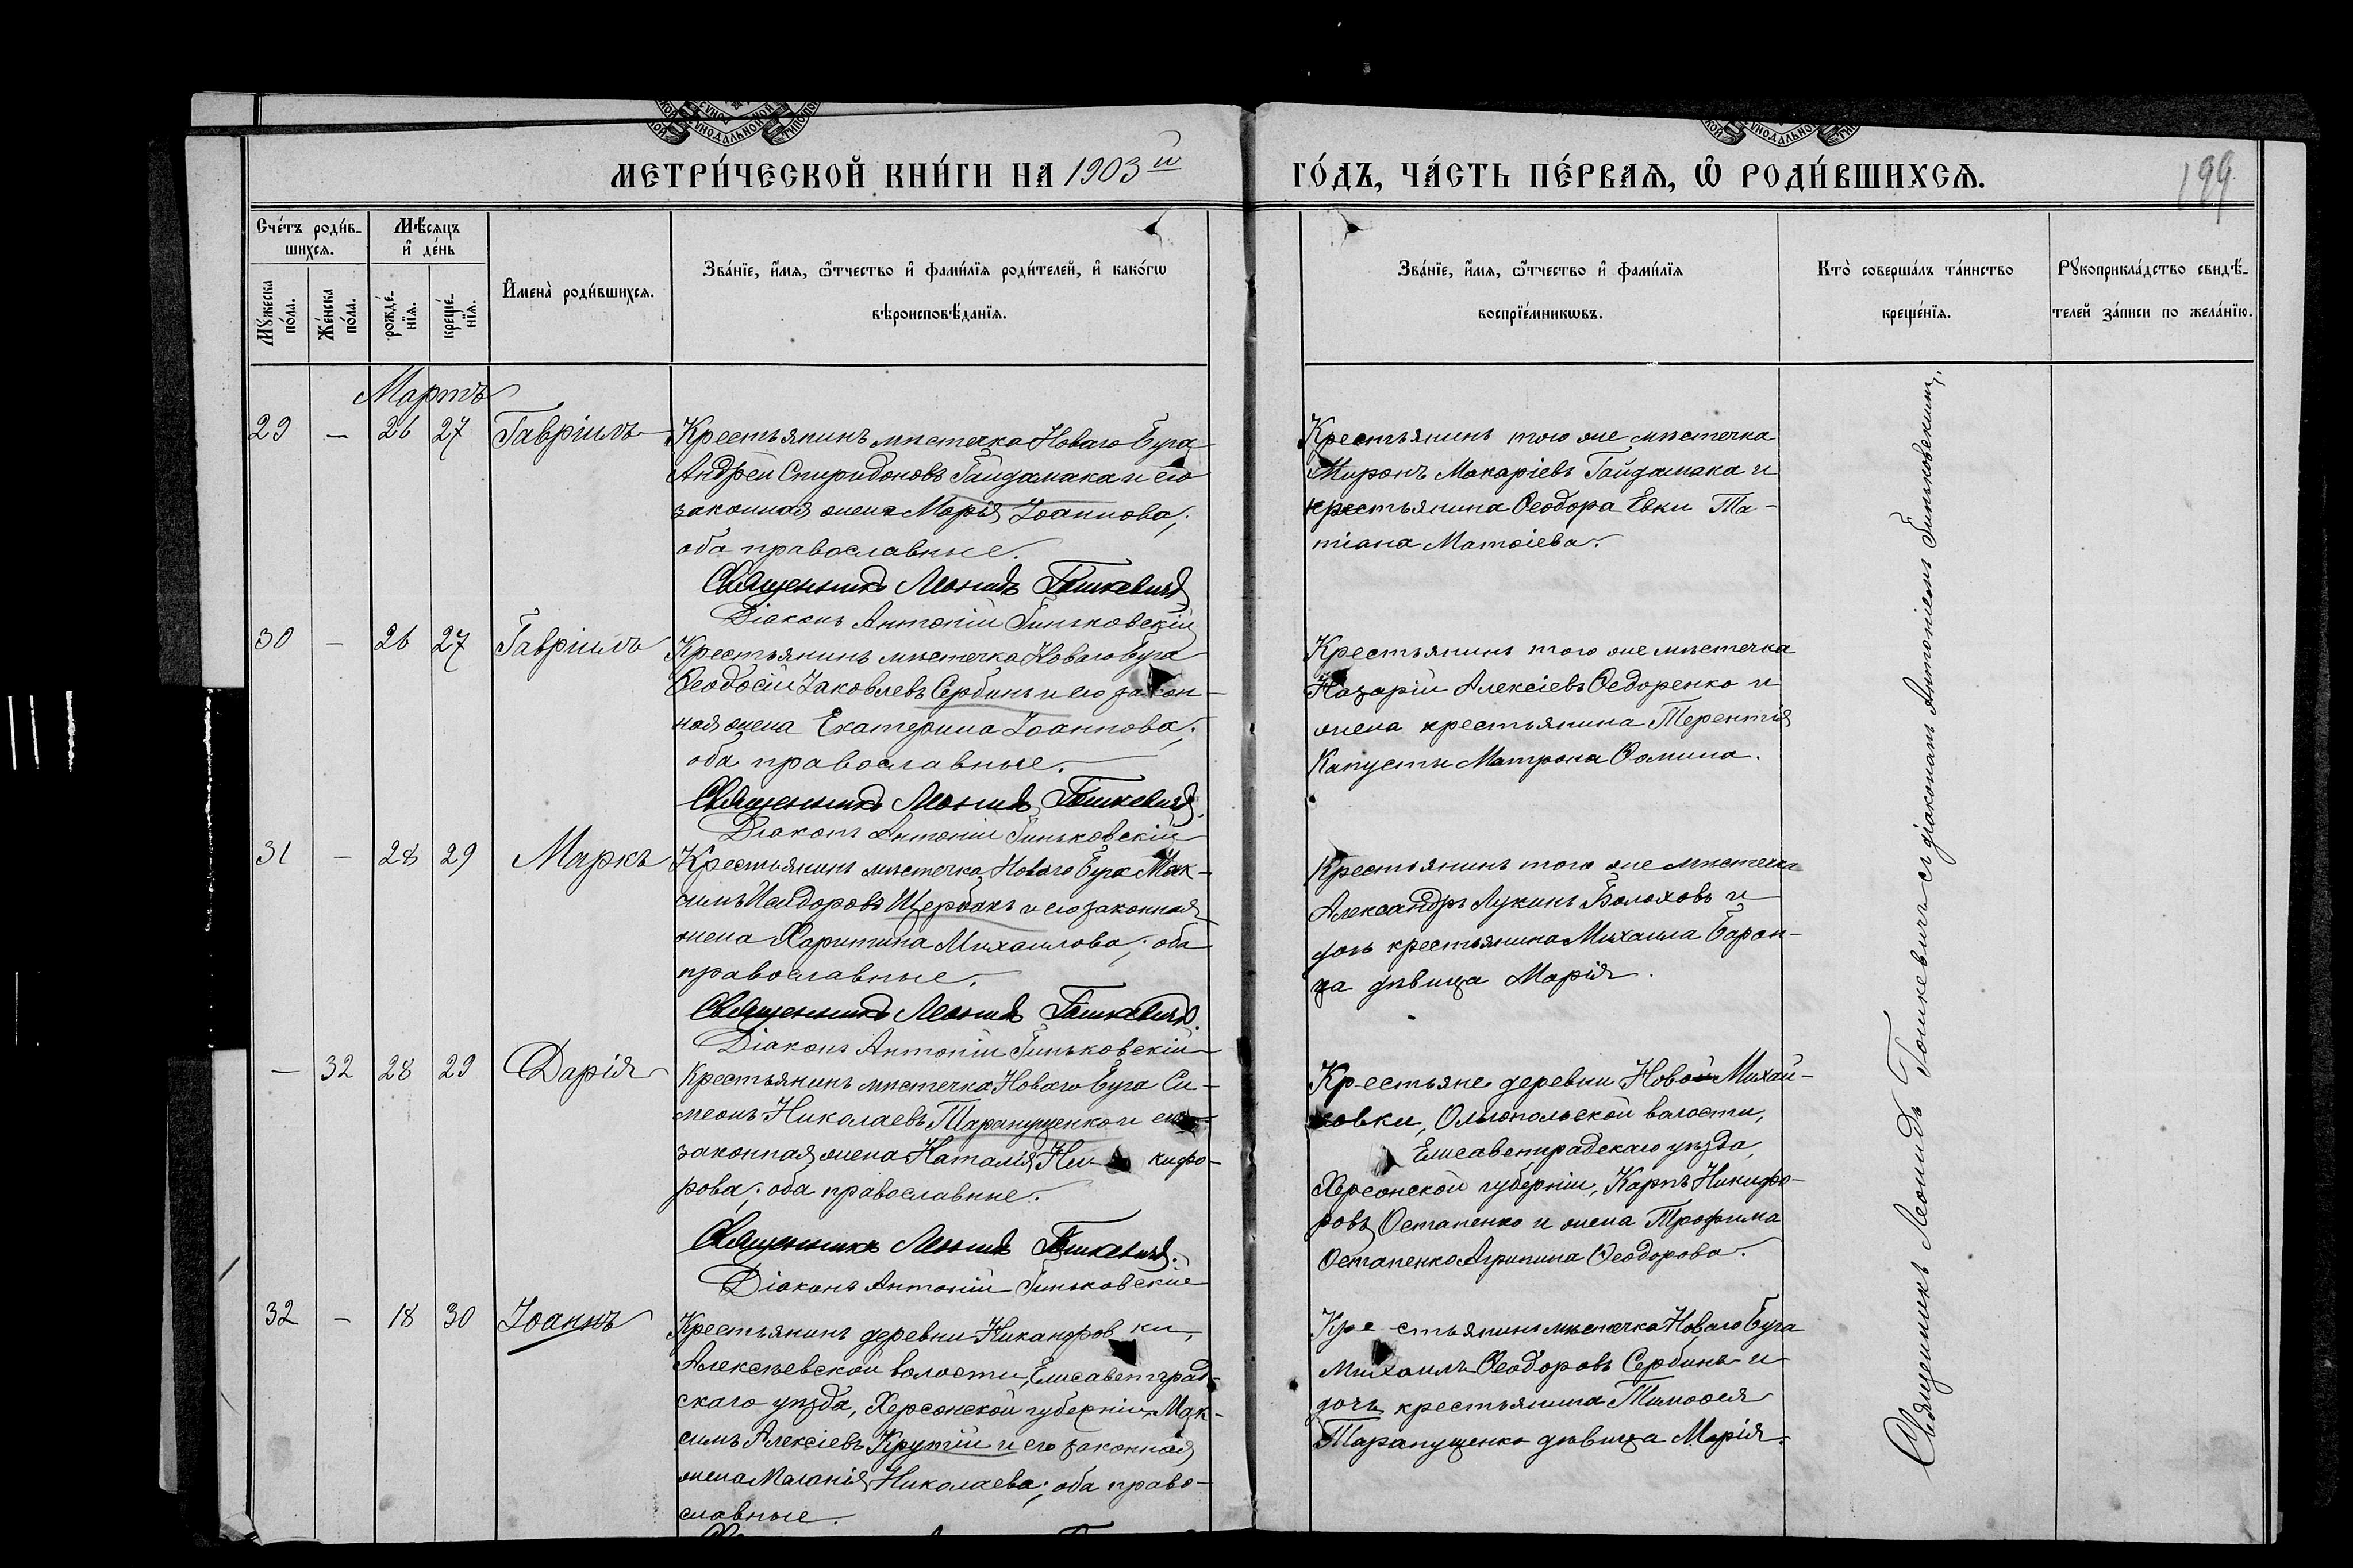 МЕТРИ́ЧЕСКОЙ КНИ́ГИ НА 1903й
ГО́ДЪ, ЧА́СТЬ ПЕ́РВАѦ, Ѡ҆ РОДИ́ВШИХСѦ.
199
Сче́тъ роди́в-
шихсѧ.
Мꙋ́жеска
по́ла.
Же́нска
по́ла.
Мѣ́сѧцъ
и҆ де́нь
рожде́-
нїѧ.
креще́-
нїѧ.
И҆мена̀ роди́вшихсѧ.
Зва́нїе, и҆́мѧ, ѻ҆́тчество и҆ фами́лїѧ роди́телей, и҆ како́гѡ
вѣроисповѣ́данїѧ.
Зва́нїе, и҆́мѧ, ѻ҆́тчество и҆ фами́лїѧ
воспрїе́мникѡвъ.
Кто̀ соверша́лъ та́инство
креще́нїѧ.
Рꙋкоприкла́дство свидѣ́-
телей за́писи по жела́нїю.
Мартъ
29 – 26 27 Гавріилъ
Крестьянинъ мѣстечка Новаго Буга
Андрей Спиридоновъ Гайдамака и его
законная жена Марія Іоаннова;
оба православные.
Священникъ Леонидъ Гошкевичъ
Діаконъ Антоній Гиньковскій
Крестьянинъ того же мѣстечка
Миронъ Макаріевъ Гайдамака и
крестьянина Ѳеодора Евки Та-
тіана Матѳіева.
30 – 26 27 Гавріилъ
Крестьянинъ мѣстечка Новаго Буга
Ѳеодосій Іаковлевъ Сербинъ и его закон-
ная жена Екатерина Іоаннова;
оба православные.
Священникъ Леонидъ Гошкевичъ.
Діаконъ Антоній Гиньковскій
Крестьянинъ того же мѣстечка
Назарій Алексіевъ Ѳедоренко и
жена крестьянина Терентія
Капусты Матрона Ѳомина.
31 – 28 29 Маркъ
Крестьянинъ мѣстечка Новаго Буга Мак-
симъ Исидоровъ Щербакъ и его законная
жена Харитина Михаилова; оба
православные.
Священникъ Леонидъ Гошкевичъ.
Діаконъ Антоній Гиньковскій
Крестьянинъ того же мѣстечка
Александръ Лукинъ Болоховъ и
дочь крестьянина Михаила Баран-
ца дѣвица Марія.
– 32 28 29 Дарія
Крестьянинъ мѣстечка Новаго Буга Си-
меонъ Николаевъ Таранущенко и его
законная жена Наталія Ни- кифо-
рова; оба православные.
Священникъ Леонидъ Гошкевичъ.
Діаконъ Антоній Гиньковскій
Крестьяне деревни Новой Михай-
ловки, Ольгопольской волости,
Елисаветградскаго уѣзда,
Херсонской губерніи, Карпъ Никифо-
ровъ Остапенко и жена Трофима
Остапенко Агрипина Ѳеодорова.
32 – 18 30 Іоаннъ
Крестьянинъ деревни Никандров ки,
Алексѣевской волости, Елисаветград-
скаго уѣзда, Херсонской губерніи, Мак-
симъ Алексіевъ Крутій и его законная
жена Меланія Николаева; оба право-
славные.
Кре стьянинъ мѣстечка Новаго Буга
Михаилъ Ѳеодоровъ Сербинъ и
дочь крестьянина Тимоѳея
Таранущенко дѣвица Марія.
Священникъ Леонидъ Гошкевичъ съ діакономъ Антоніемъ Гиньковскимъ.